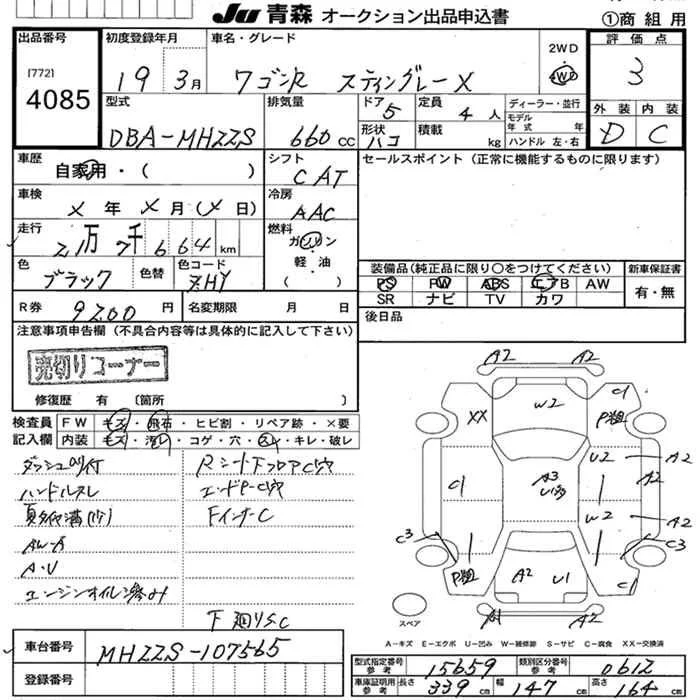 JU 青森 オークション出品申込書
①商組用
出品番号 初度登録年月 車名・グレード 2WD 4WD 評価点
[772]
4085
19 3月 ワゴンR スティングレーX 3
型式 排気量 ドア 5 定員 4人 ディーラー・並行 外装 内装
DBA-MHZZS 660cc 形状 ハコ 積載 kg モデル年式 年式 ハンドル 左・右 D C
車歴 自家用・( ) シフト CAT セールスポイント(正常に機能するものに限ります)
車検 メ年メ月(メ日) 冷房 AAC
走行 21万7千664km 燃料 ガソリン
軽・油
( )
色 ブラック 色替 色コード ZHY
装備品(純正品に限り○をつけてください) 新車保証書
PS PW ABS エアB AW 有・無
SR ナビ TV カワ
R券 9200円 名変期限 月 日 後日品
注意事項申告欄(不具合内容等は具体的に記入して下さい)
売切りコーナー
修復歴 有 〔箇所 〕
検査員 FW キズ・飛石・ヒビ割・リペア跡・×要
記入欄 内装 キズ・汚レ・コゲ・穴・スレ・キレ・破レ
ハンドルスレ
AW-A
A・U
Fインナ-C
下廻りSC
A2 A2
W2 C1
XX P粗
U2 A2
A2
C1 A3
W2 A2
C3 C3
P粗 A2 U1 C1
A1 A2
スペア
A-キズ E-エクボ U-凹み W-補修跡 S-サビ C-腐食 XX-交換済
車台番号 MHZZS-107565
登録番号
型式指定番号 参考 15659 類別区分番号 参考 0612
車庫証明用 参考 長さ 339cm 幅 147cm 高さ 164cm